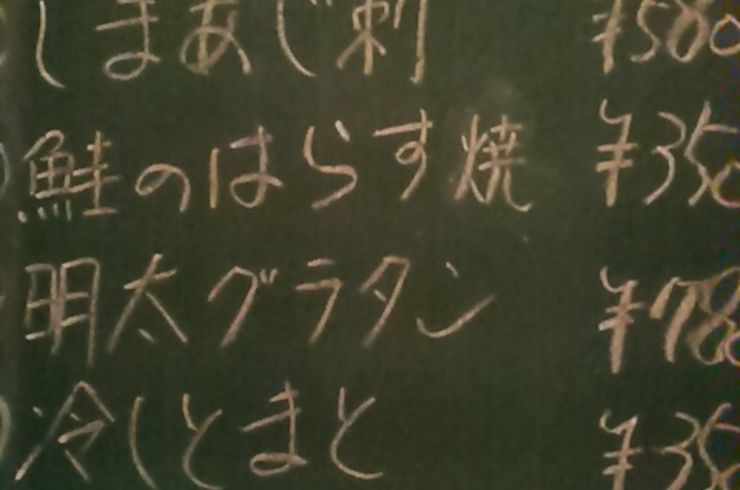 しまあじ刺 ¥580
鮭のはらす焼 ¥350
明太グラタン ¥780
冷しとまと ¥350